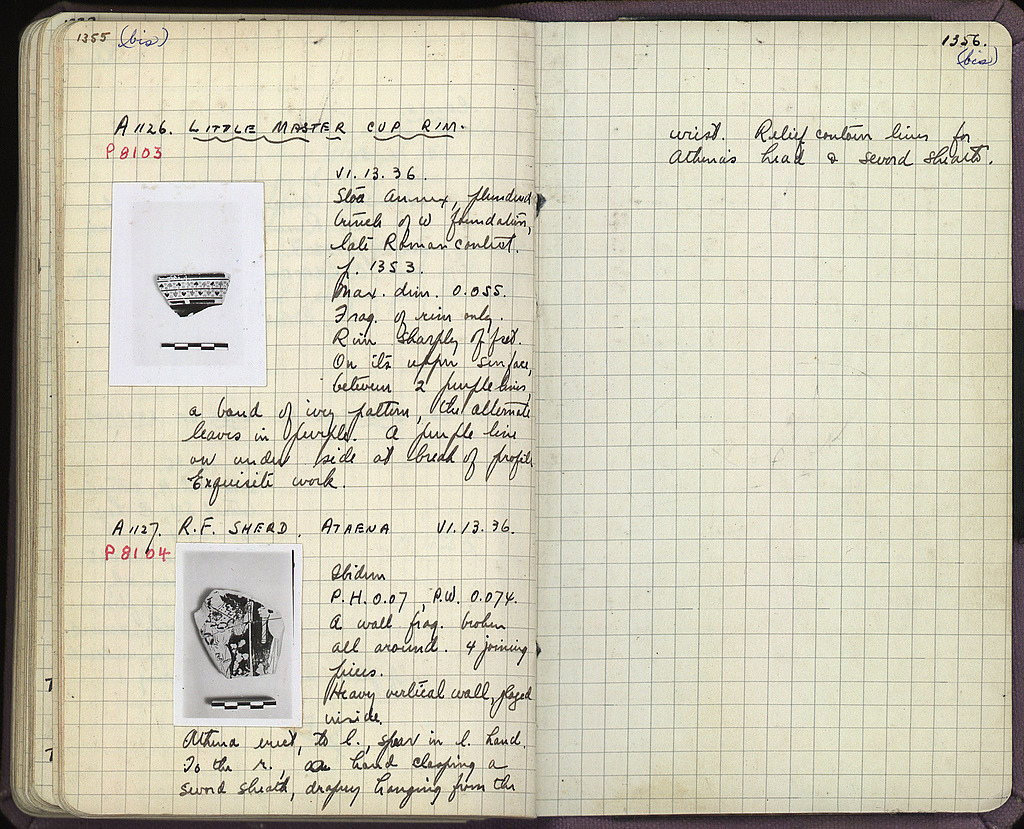 1355 (bis)
A 1126. LITTLE MASTER CUP RIM.
P 8103
VI.13.36.
Stoa Annex, plundered
trench of W foundation,
late Roman context.
f. 1353.
Max. dim. 0.055.
Frag. of rim only.
Rim sharply offset.
On its upper surface,
between 2 purple lines,
a band of ivy pattern, the alternate
leaves in purple. A purple line
on under side at break of profile.
Exquisite work.
A 1127. R.F. SHERD, ATHENA VI.13.36.
P 8104
Ibidem
P.H. 0.07, P.W. 0.074.
A wall frag. broken
all around. 4 joining
pieces.
Heavy vertical wall, glazed
inside.
Athena erect, to l., spear in l. hand.
To the r., a hand clasping a
sword sheath, drapery hanging from the
1356.
(bis)
wrist. Relief contour lines for
Athena's head & sword sheath.